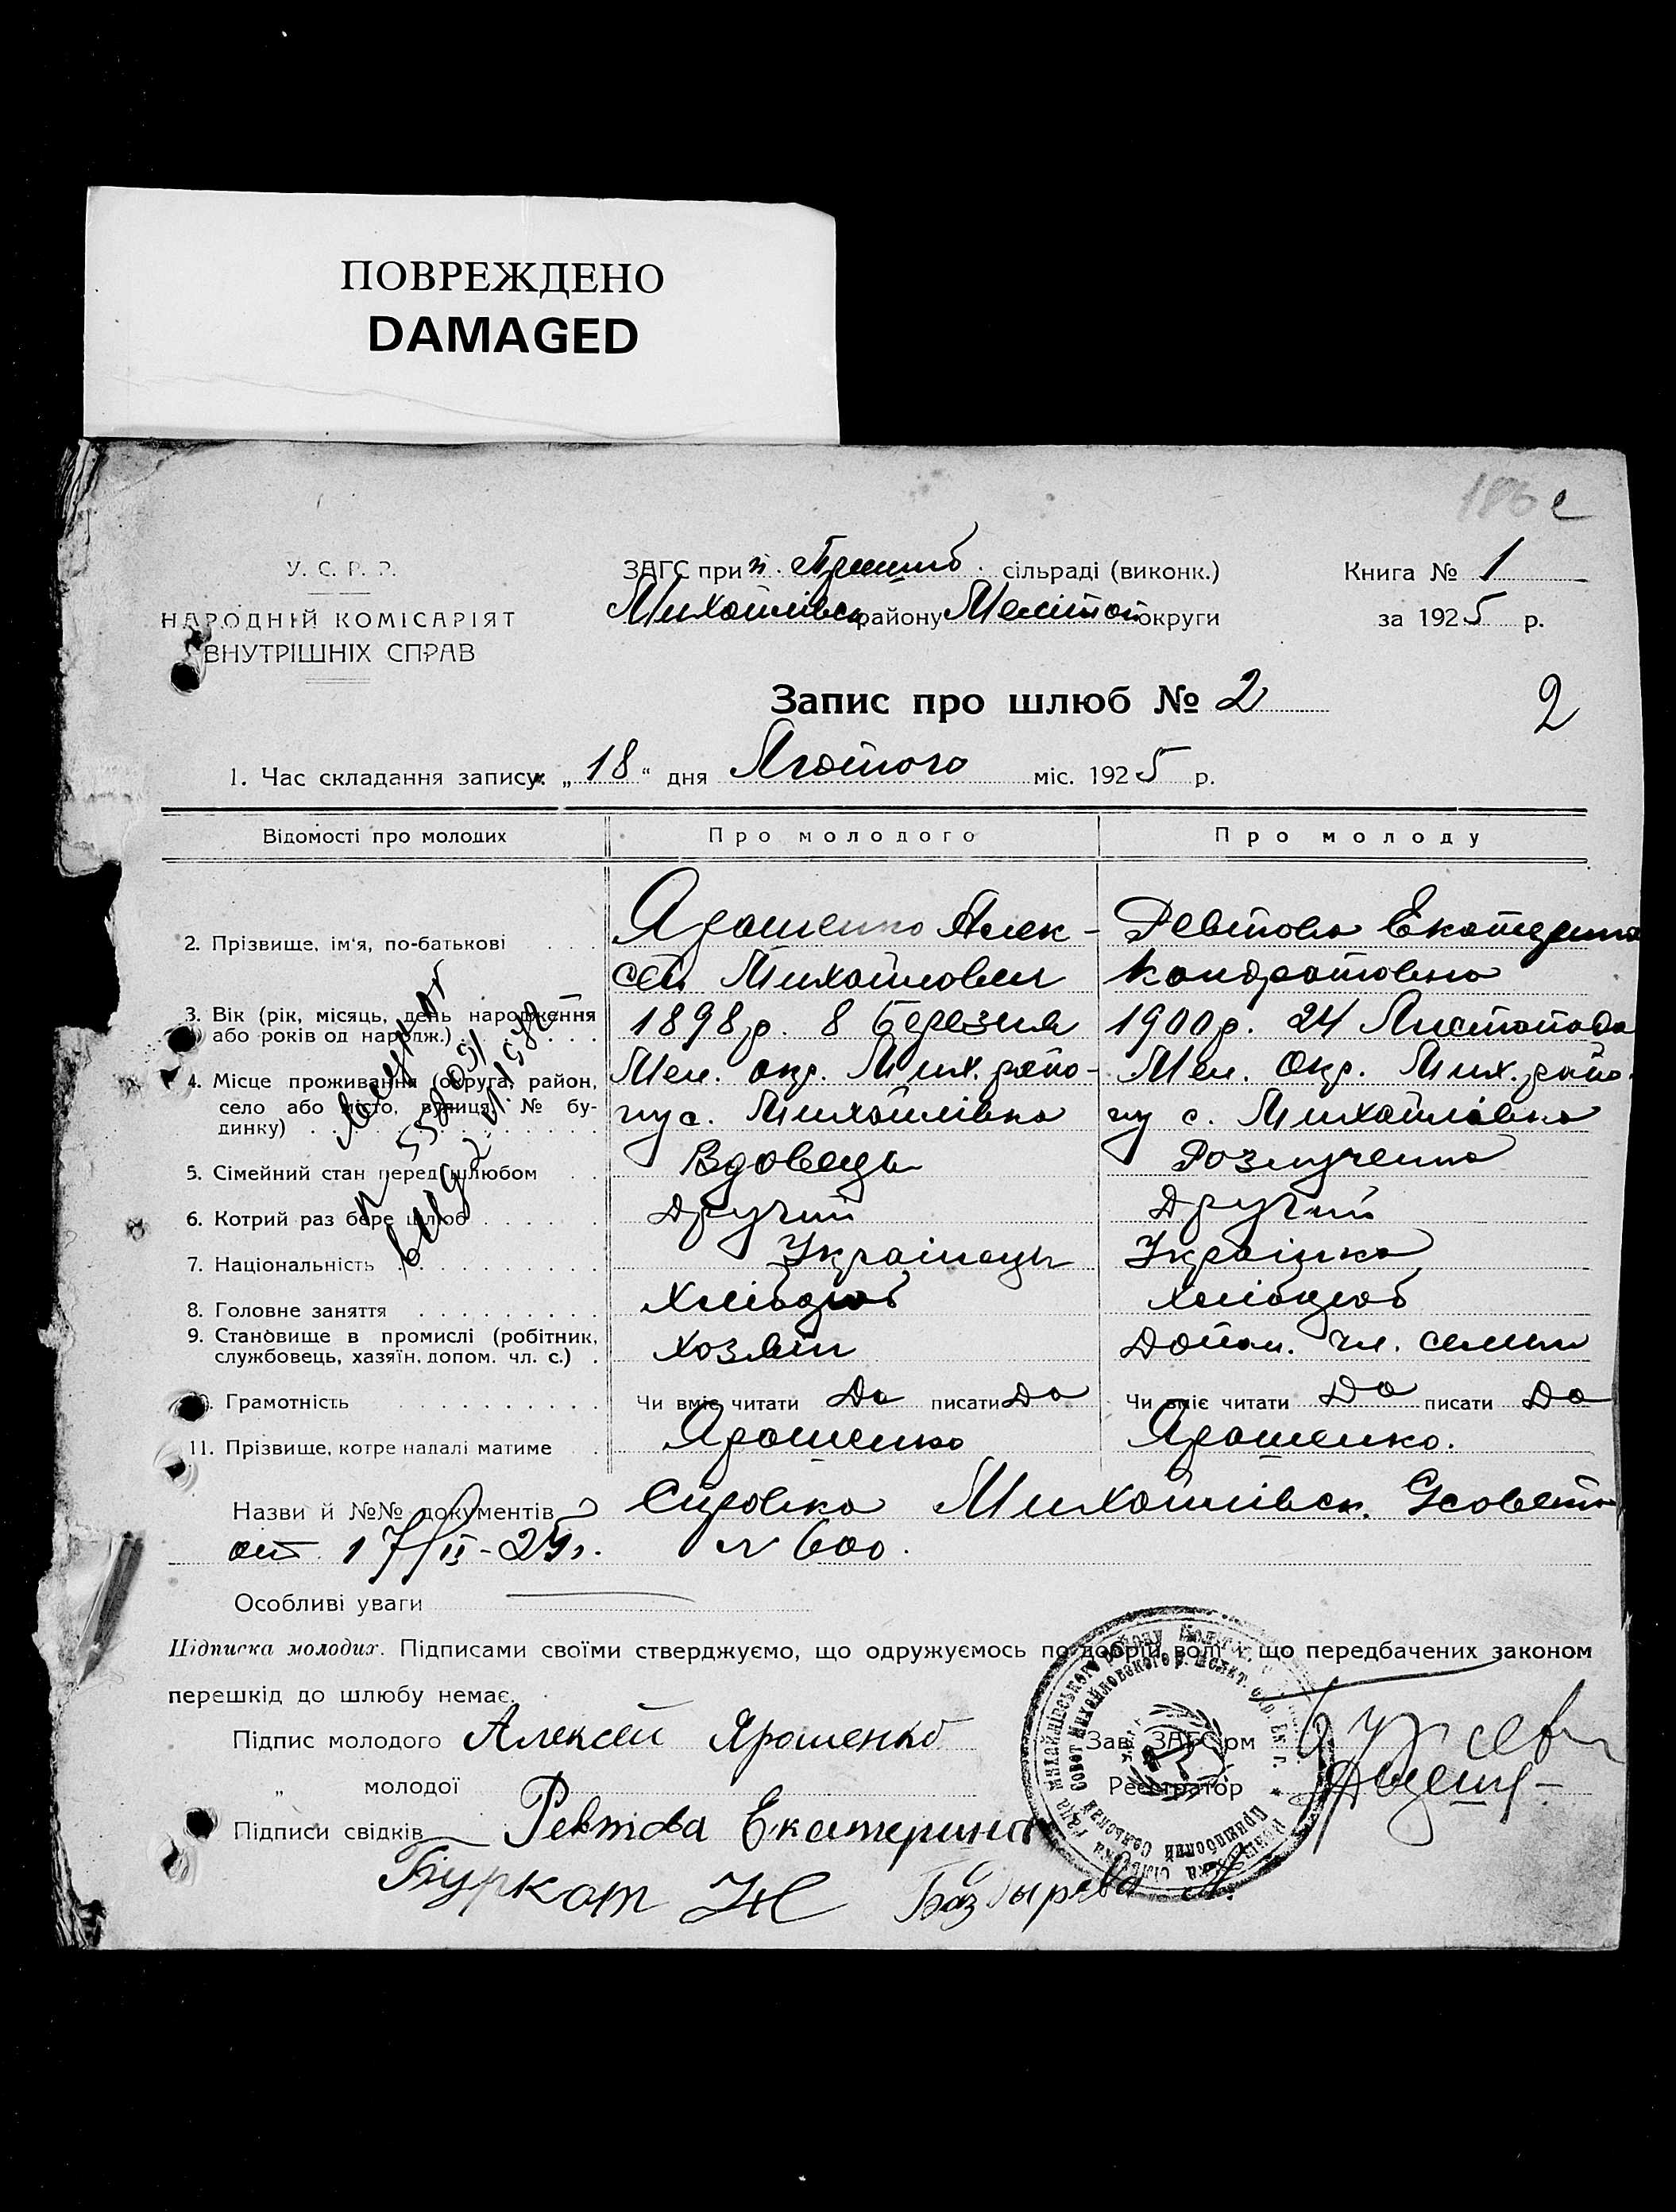 ПОВРЕЖДЕНО
DAMAGED
186
У. С. Р. Р.
НАРОДНІЙ КОМІСАРІЯТ
ВНУТРІШНІХ СПРАВ
ЗАГС при п. Пришиб. сільраді (виконк.)
Михайлівськ району Меліт окpуги
Книга № 1
за 1925 р.
Запис про шлюб № 2
2
1. Час складання запису: „18“ дня Лютого міс. 1925 р.
Відомості про молодих
Про молодого
Про молоду
2. Прізвище, ім‘я, по-батькові . . .
Ярошенко Алек-
сей Михайлович
Ревтова Екатерина
Кондратовна
3. Вік (рік, місяць, день народження
або років од народж.) . . . . .
1898 р. 8 Березня
1900 р. 24 Листопада
4. Місце проживання (округа, район,
село або місто, вулиця, № бу-
динку) . . . . .
Мел. окр. Мих. райо-
ну с. Михайлівка
Мел. Окр. Мих. райо-
ну с. Михайлівка
5. Сімейний стан перед шлюбом . .
Вдовець
Розлучена
6. Котрий раз бере шлюб . . . . .
Другий
Другий
7. Національність . . . . .
Українець
Українка
8. Головне заняття . . . . .
Хлібороб
Хлібороб
9. Становище в промислі (робітник,
службовець, хазяїн, допом. чл. с.) .
Хозяін
Допом. чл. семьи
Грамотність . . . . .
Чи вміє читати Да писати Да
Чи вміє читати Да писати Да
11. Прізвище, котре надалі матиме .
Ярошенко
Ярошенко.
Назви й №№ документів Михайлівск.
от 17/II-25 г. N 600.
Особливі уваги
Підписка молодих. Підписами своїми стверджуємо, що одружуємось по добрій волі і що передбачених законом
перешкід до шлюбу немає.
Підпис молодого Алексей Ярошенко
„ молодої
Підписи свідків Ревтова Екатерина
Буркот
Зав. ЗАГС'ом
Реєстратор